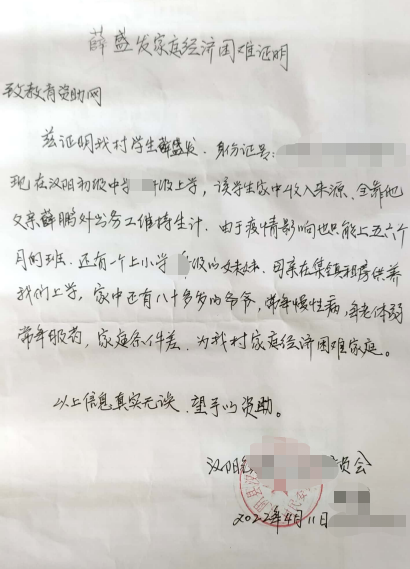 薛盛发家庭经济困难证明
致教育资助网
兹证明我村学生薛盛发、身份证号:
现在汉阴初级中学 级上学,该学生家中收入来源、全靠他
父亲薛鹏外出务工维持生计.由于疫情影响也只能上五六个
月的班.还有一个上小学 级的妹妹.母亲在集镇租房供养
我们上学,家中还有八十多岁的爷爷,常年慢性病,年老体弱
常年服药,家庭条件差.为我村家庭经济困难家庭。
以上信息真实无误.望予以资助。
汉阴 员会
2022年4月11日